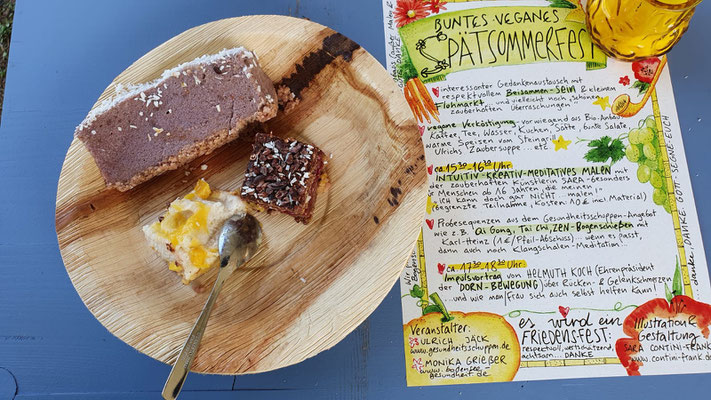 BUNTES VEGANES
SPÄTSOMMERFEST
interessanter Gedankenaustausch mit
respektvollem Beisammen-SEIN & kleinem
Flohmarkt... und vielleicht noch "schönen,
zauberhaften Überraschungen..."
vegane Verköstigung vorwiegend aus Bio-Anbau
Kaffee, Tee, Wasser, Kuchen, Säfte, bunte Salate,
warme Speisen vom Steingrill
Ulrichs Zaubersuppe etc.
ca. 15³⁰-16³⁰ Uhr:
INTUITIV-KREATIV-MEDITATIVES MALEN mit
der zauberhaften Künstlerin SARA - besonders
Menschen ab 16 Jahre, die meinen
"Ich kann doch gar NICHT malen!"
(begrenzte Teilnahme, Kosten: 10 € incl. Material)
Probesequenzen aus dem Gesundheitsschuppen-Angebot
wie z.B. Qi Gong, Tai Chi, ZEN-Bogenschießen mit
Karl-Heinz (1€/Pfeil-Abschiss)... wenn es passt,
dann auch noch Klangschalen-Meditation...
ca. 17³⁰-18³⁰ Uhr:
Impulsvortrag von HELMUTH KOCH (Ehrenpräsident
der DORN-BEWEGUNG) über Rücken- & Gelenkschmerzen
...und wie man/frau sich auch selbst helfen kann!
Veranstalter:
ULRICH JÄCK
www.gesundheitsschuppen.de
MONIKA GRIEßER
www.bodensee-
gesundheit.de
es wird ein
FRIEDENSFEST:
respektvoll, wertschätzend,
achtsam... DANKE
Illustration &
Gestaltung
SARA CONTINI-FRANK
www.contini-frank.de
danke, DANKE. GOTT SEGNE EUCH